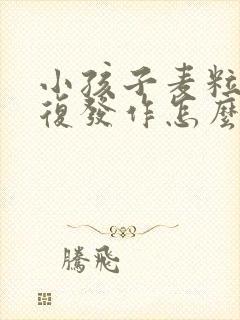 小孩子麦粒
復發作怎麽
騰飛